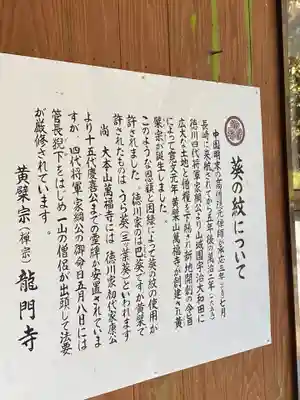 葵の紋について
中国明末の高僧隠元禅師が承応三年(一六五四)七月
長崎に来航されてから五年後の萬治二年(一六五九)
徳川四代将軍家綱公より山城国宇治大和田に
広大な土地と僧糧を下賜され新地開創の令旨
によって寛文元年黄檗山萬福寺が創建され黄
檗宗が誕生しました。
このような恩顧と因縁によって葵の紋の使用が
許されました。徳川家のは巴葵ですが黄檗で
許されたものは うら葵(三ツ葉葵)といわれます
尚 大本山萬福寺には 徳川家初代家康公
より十五代慶喜公までの霊牌が安置されていま
すが、四代将軍家綱公の御命日五月八日には
管長猊下をはじめ一山の僧侶が出頭して法要
が厳修されています。
黄檗宗(禅宗)龍門寺